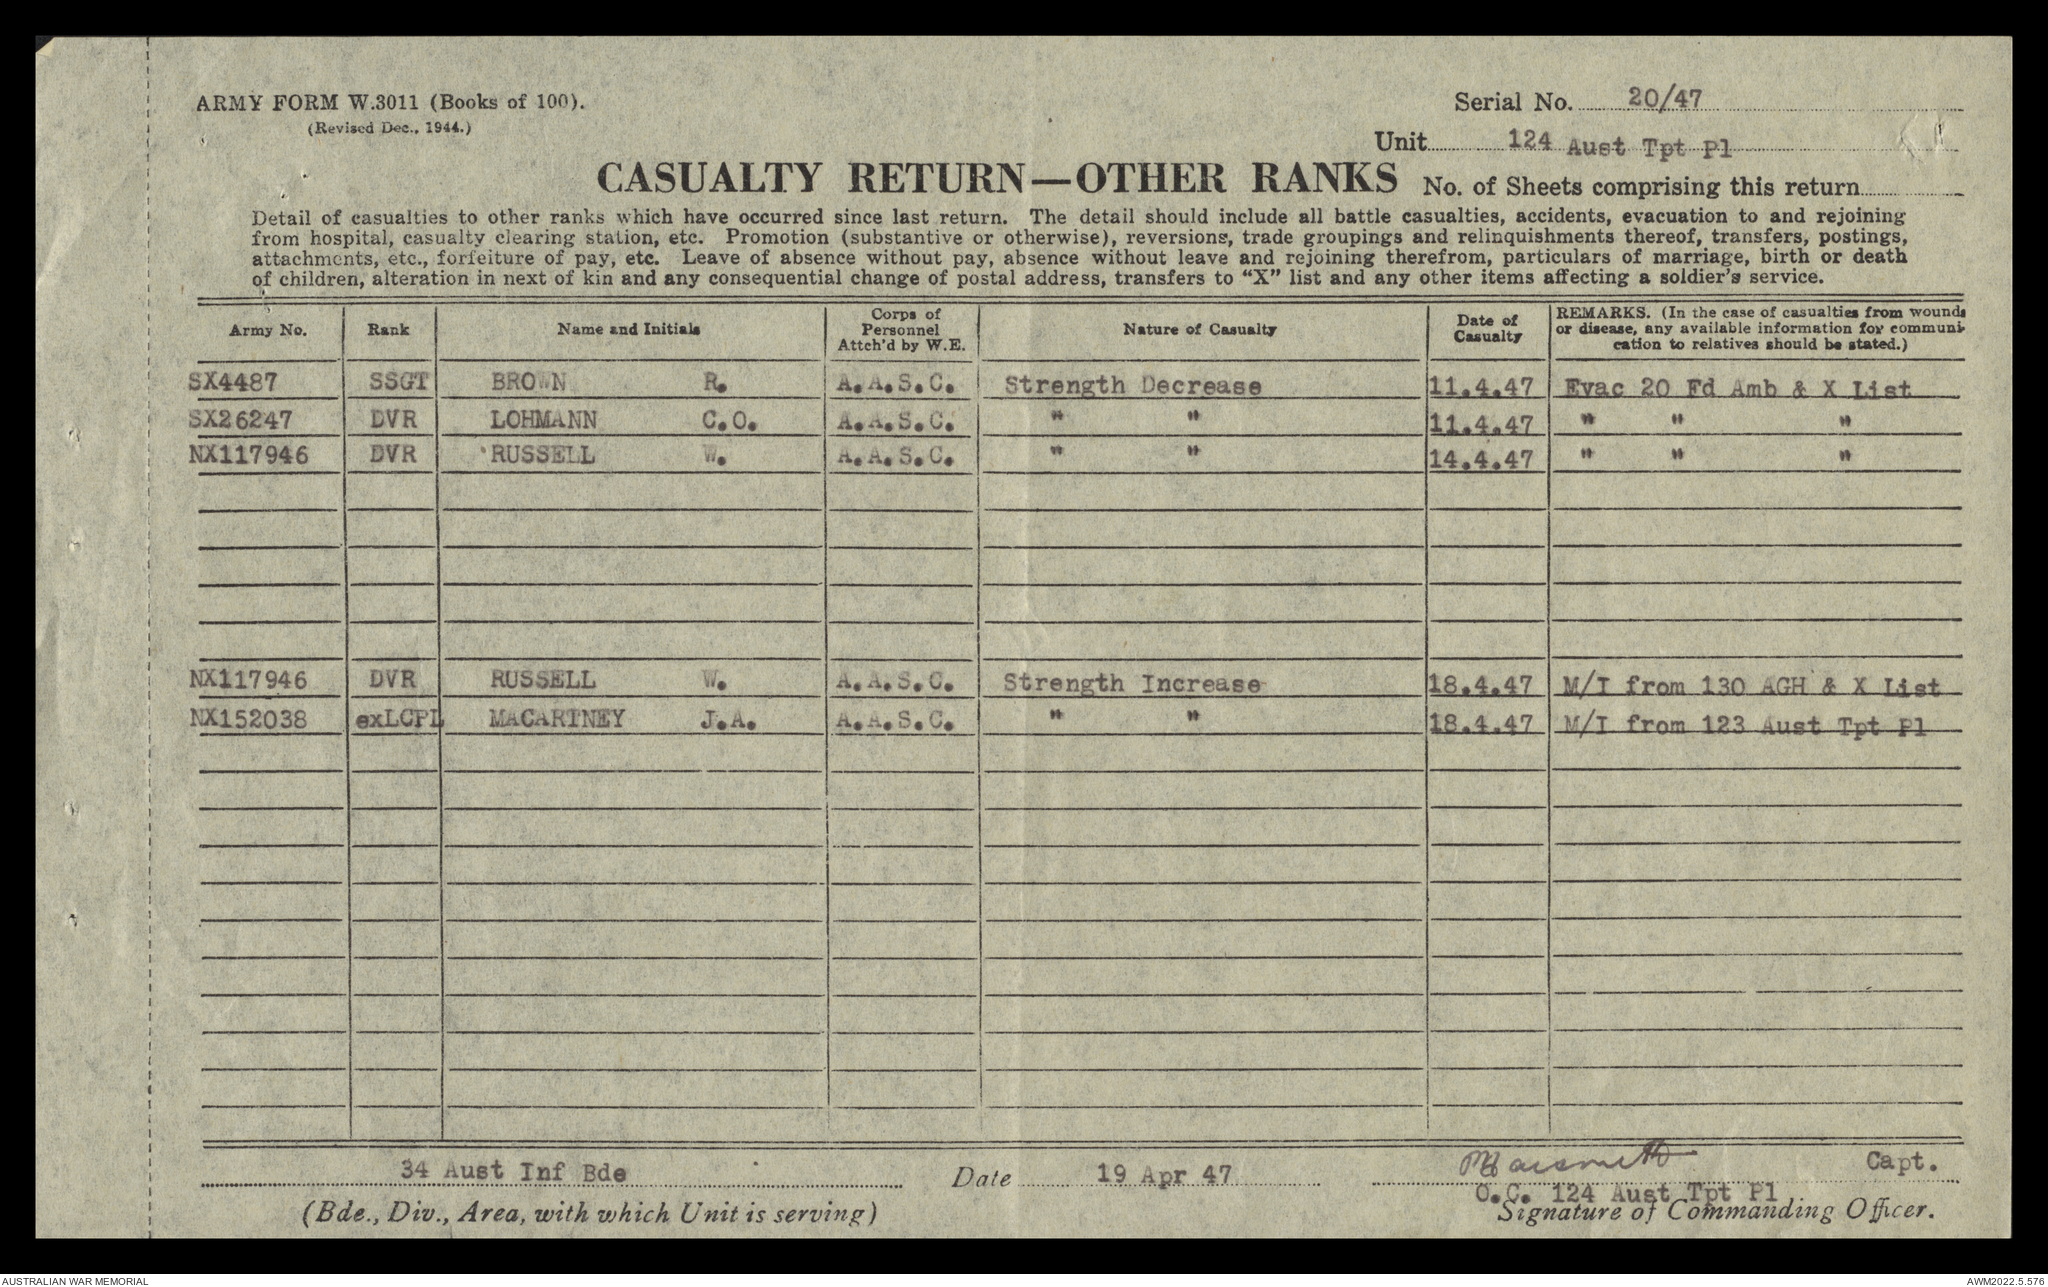 ARMY FORM W.3011 (Books of 100).
(Revised Dec., 1944.)
Serial No. 20/47
Unit 124 Aust Tpt Pl
CASUALTY RETURN—OTHER RANKS
No. of Sheets comprising this return
Detail of casualties to other ranks which have occurred since last return. The detail should include all battle casualties, accidents, evacuation to and rejoining
from hospital, casualty clearing station, etc. Promotion (substantive or otherwise), reversions, trade groupings and relinquishments thereof, transfers, postings,
attachments, etc., forfeiture of pay, etc. Leave of absence without pay, absence without leave and rejoining therefrom, particulars of marriage, birth or death
of children, alteration in next of kin and any consequential change of postal address, transfers to "X" list and any other items affecting a soldier's service.
Army No. Rank Name and Initials Corps of Personnel Attch'd by W.E. Nature of Casualty Date of Casualty REMARKS. (In the case of casualties from wounds or disease, any available information for communication to relatives should be stated.)
SX4487 SSGT BROWN R. A.A.S.C. Strength Decrease 11.4.47 Evac 20 Fd Amb & X List
SX26247 DVR LOHMANN C.O. A.A.S.C. " " 11.4.47 " " "
NX117946 DVR RUSSELL W. A.A.S.C. " " 14.4.47 " " "
NX117946 DVR RUSSELL W. A.A.S.C. Strength Increase 18.4.47 M/I from 130 AGH & X List
NX152038 exLCPL MACARTNEY J.A. A.A.S.C. " " 18.4.47 M/I from 123 Aust Tpt Pl
34 Aust Inf Bde Date 19 Apr 47 Capt.
O.C. 124 Aust Tpt Pl
(Bde., Div., Area, with which Unit is serving) Signature of Commanding Officer.
AUSTRALIAN WAR MEMORIAL
AWM2022.5.576